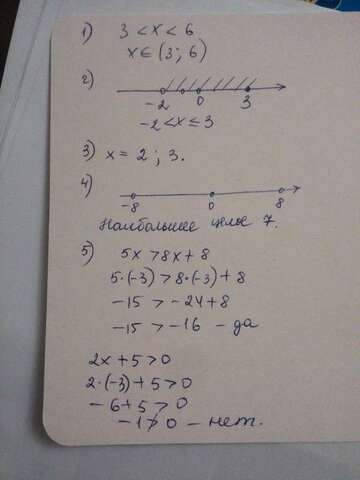 1) 3 < x < 6
x ∈ (3; 6)
2)
-2 0 3
-2 < x ≤ 3
3) x = 2; 3.
4)
-8 0 8
Наибольшее целое 7.
5) 5x > 8x + 8
5·(-3) > 8·(-3) + 8
-15 > -24 + 8
-15 > -16 - да
2x + 5 > 0
2·(-3) + 5 > 0
-6 + 5 > 0
-1 ≯ 0 - нет.